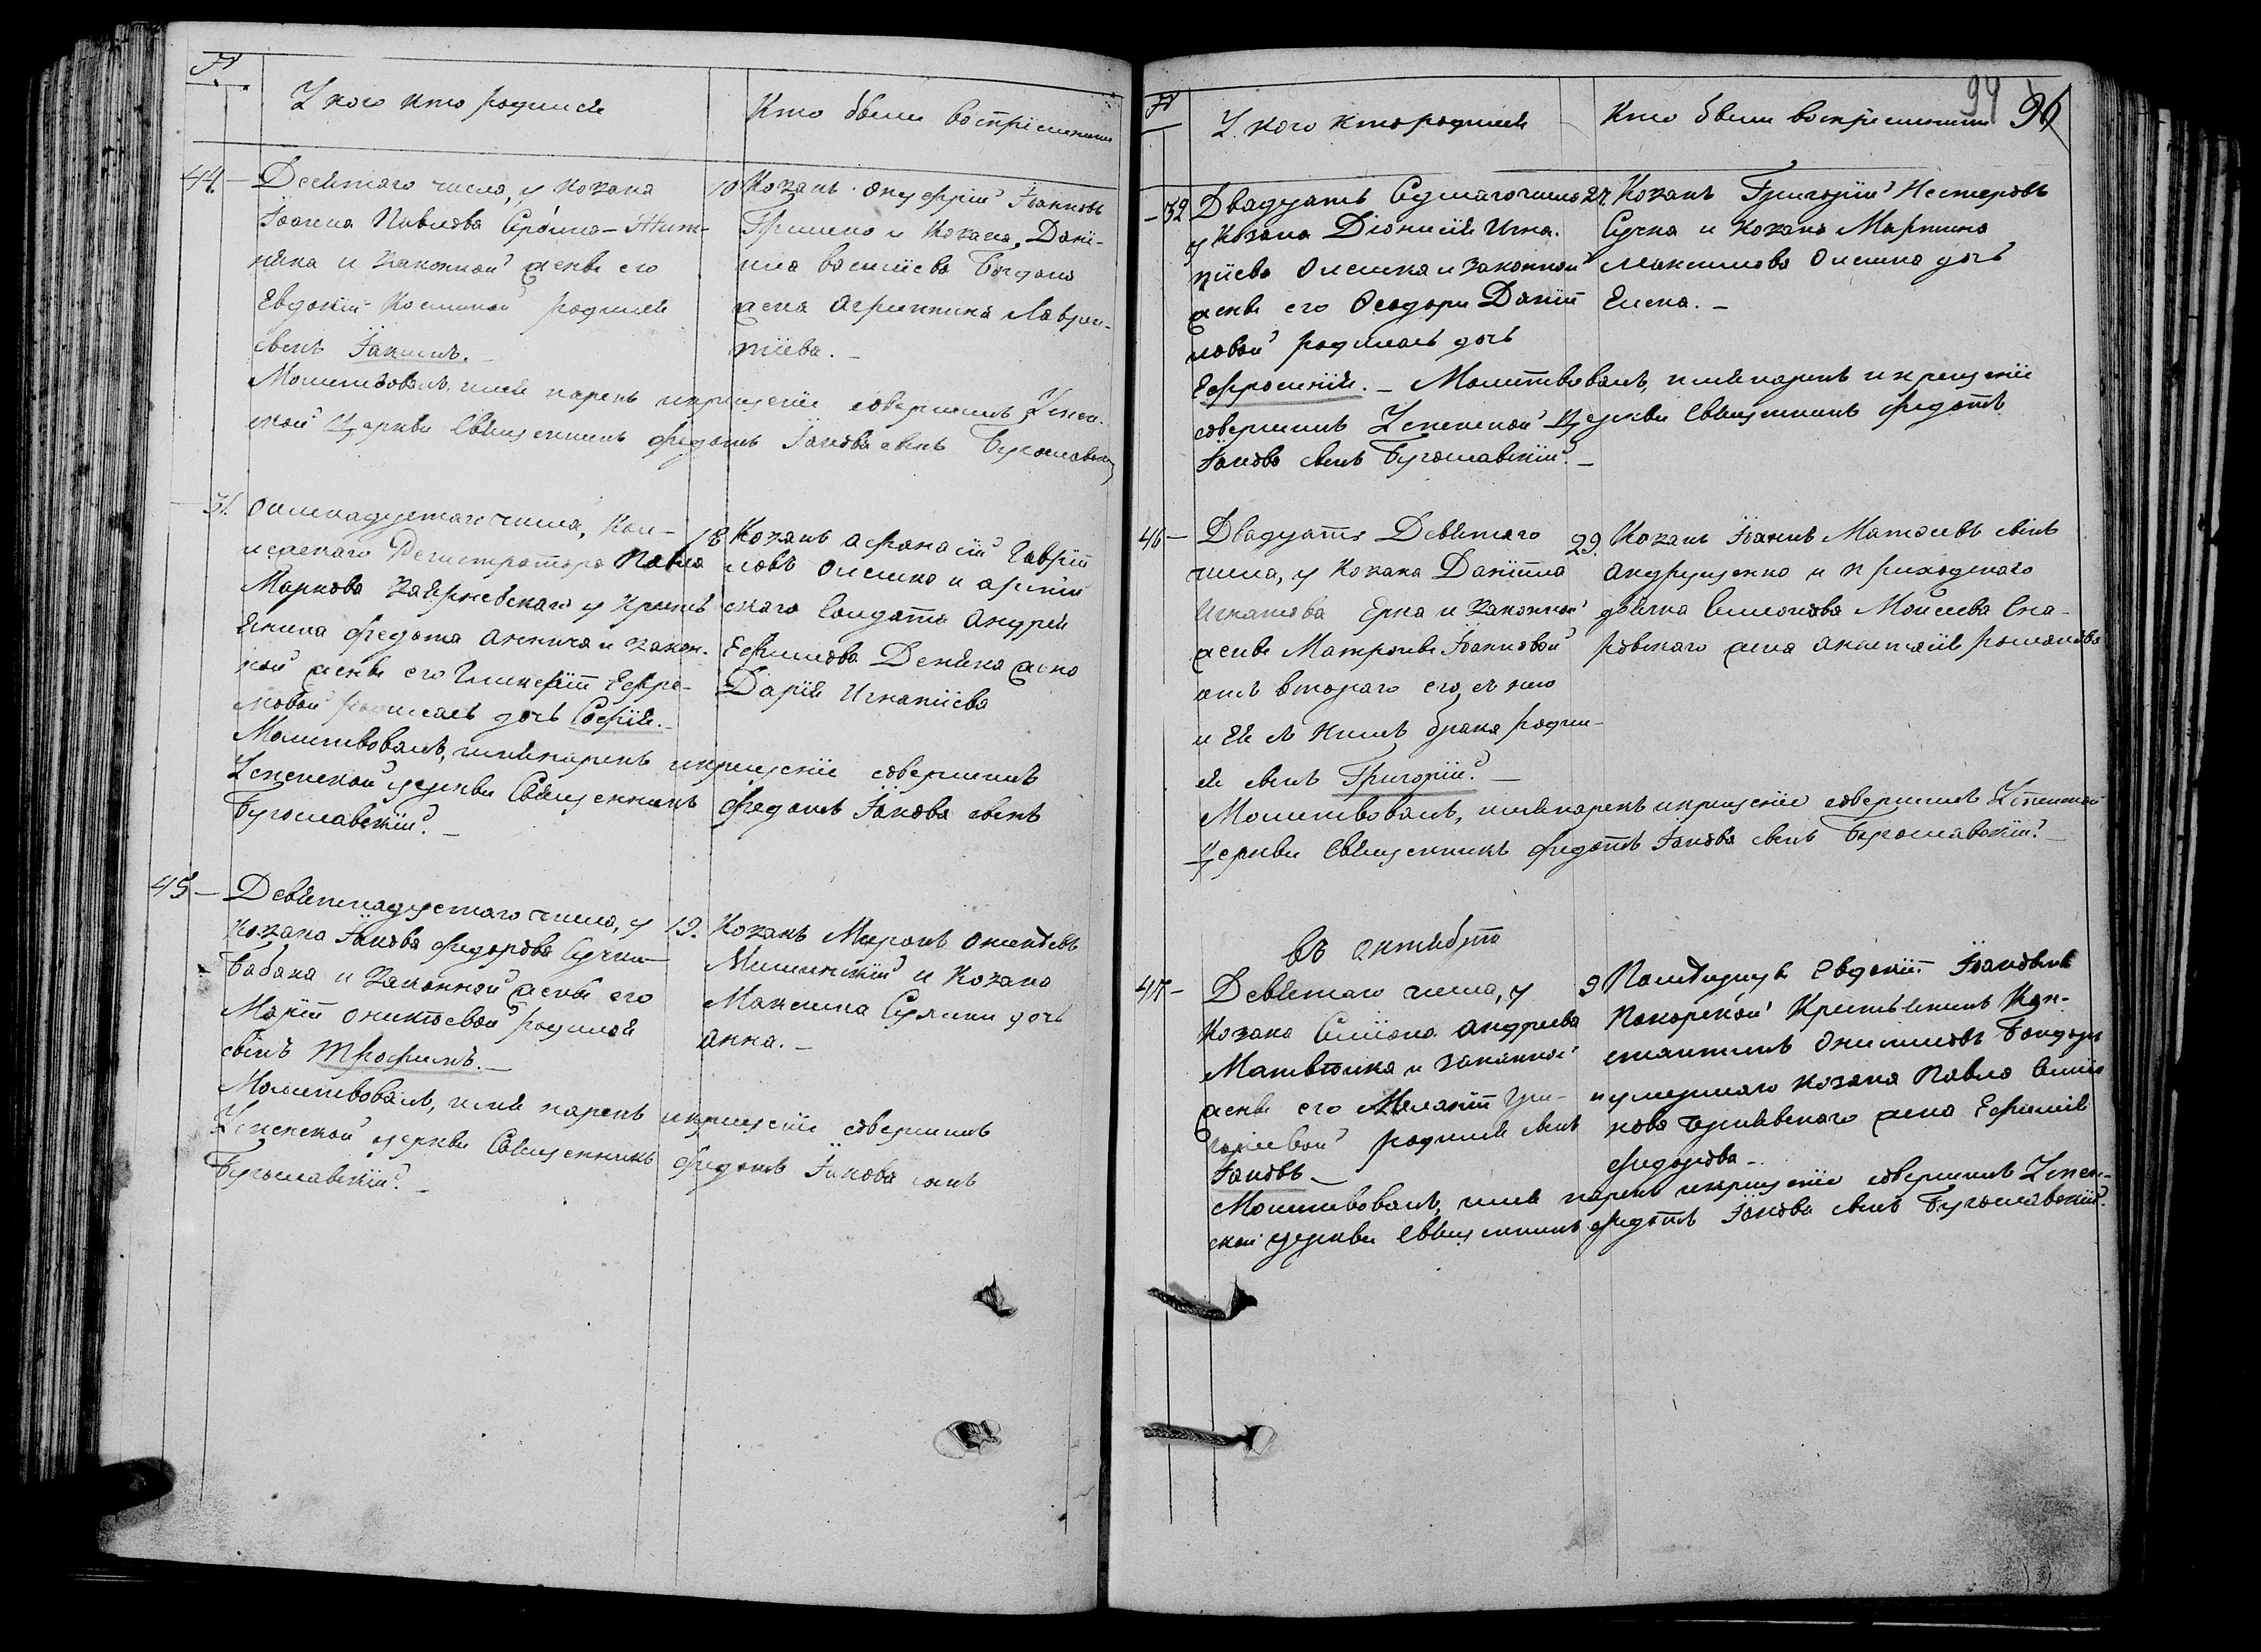 №
У кого кто родился
Кто были воспріемники
44. —
Десятаго числа, у козака
Іоанна Павлова
няка и законной жены его
Евдокіи Косминой родился
сынъ Іакимъ. —
10
Козакъ Онуфрій Іоанновъ
Гришко и козака Дани-
ила Василіева Богдана
жена Агриппина Лаврен-
тіева. —
Молитвовалъ, имя нарекъ и крещеніе совершилъ Успен-
ской Церкви Священникъ Федотъ Іакова сынъ Бугославскій
31.
Осмнадцатаго числа, Кол-
лежскаго Регистратора Павла
Маркова у кресть-
янина Федота и закон-
ной жены его Гликеріи Ефре-
мовой родилась дочь Софія. —
18
Козакъ Афанасій Гавріи-
ловъ Олешко и армей-
скаго солдата Андрея
Ефимова жена
Дарія Игнатіева
Молитвовалъ, имя нарекъ и крещеніе совершилъ
Успенской церкви Священникъ Федотъ Іакова сынъ
Бугославскій. —
45 —
Девятнадцатаго числа, у
козака Іакова Федорова Сучка-
Бабака и законной жены его
Маріи Оникіевой родился
сынъ Трофимъ. —
19.
Козакъ Миронъ
и козака
Максима дочь
Анна. —
Молитвовалъ, имя нарекъ и крещеніе совершилъ
Успенской церкви Священникъ Федотъ Іакова сынъ
Бугославскій. —
94 96
№
У кого кто родился
Кто были воспріемники
— 32
Двадцать Седмаго числа
у козака Діонисія Игна-
тіева Олешка и законной
жены его Феодоры Даніи-
ловой родилась дочь
27.
Козакъ Григорій Нестеровъ
Сучка и козака Мартина
Максимова Олешка дочь
Елена. —
Ефросинія. — Молитвовалъ, имя нарекъ и крещеніе
совершилъ Успенской Церкви Священникъ Федотъ
Іакова сынъ Бугославскій. —
46 —
Двадцать Девятаго
числа, у козака Даніила
Игнатова Ерка и законной
жены Матроны Іоанновой
отъ втораго его, съ нею
и ея съ нимъ брака родил-
ся сынъ Григорій. —
29.
Козакъ Іоаннъ сынъ
Андрущенко и приходскаго
дьячка Симеонова Моисеева
жена Романова
Молитвовалъ, имя нарекъ и крещеніе совершилъ Успенской
Церкви Священникъ Федотъ Іакова сынъ Бугославскій. —
въ октябръ
47 —
Девятаго числа, у
козака Симеона Андреева
и законной
жены его Меланіи Гри-
горіевой родился сынъ
Іаковъ —
9
Помѣщицы Евдокіи
крестьянинъ Кон-
стантинъ Онисимовъ Бондарь
и умершаго козака Павла
жена Ефимія
Федорова —
Молитвовалъ, имя нарекъ и крещеніе совершилъ Успен-
ской церкви Священникъ Федотъ Іакова сынъ Бугославскій.